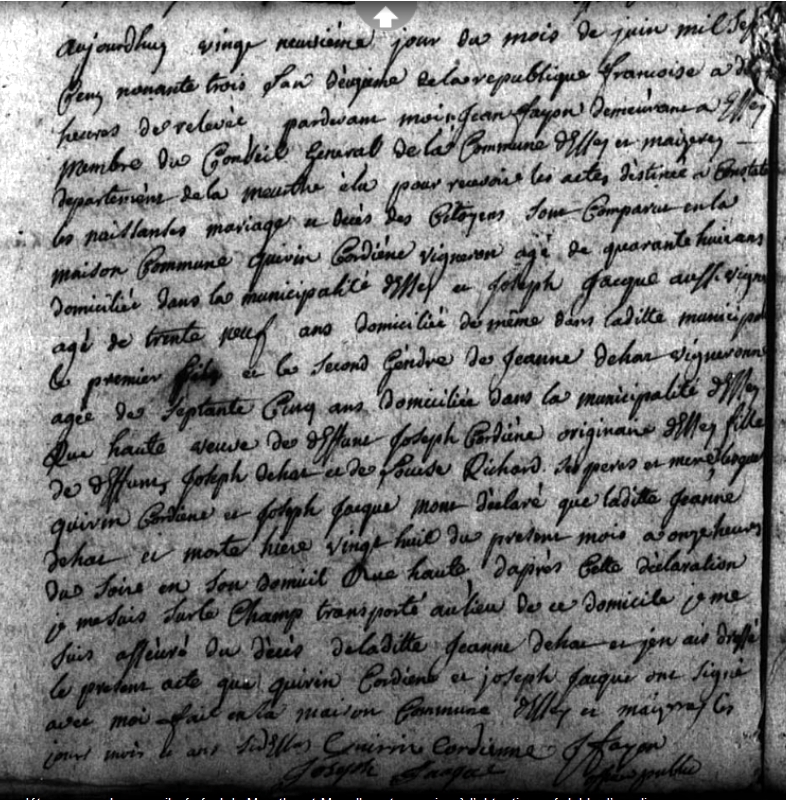 aujourdhuy vingt neuvième jour du mois de juin mil Sept
Cent nonante trois L'an deuxieme de la republique francoise a dix
heures de relevée pardevant moi Jean fayon demeurant a Essey
membre du Conseil General de la Commune d'Essey et maizerey
departement de la meurthe èlu pour recevoir les actes destinée a Constater
les naissances mariage et decès des Citoyens sont Comparut en la
maison Commune quirin Cordiéne vigneron agé de quarante huit ans
domiciliée dans la municipalité d'Essey et Joseph Jacque aussi vigneron
agé de trente neuf ans domiciliée de même dans laditte municipalité
le premier fils et le second Géndre de Jeanne dehat vigneronne
agée de Septante Cinq ans domiciliée dans la municipalité d'Essey
Rue haute veuve de deffunt Joseph Cordiéne originaire d'Essey fille
de deffunt Joseph dehat et de Louise Richard. Ses peres et mere lesquels
quirin Cordiéne et Joseph Jacque mont déclaré que laditte Jeanne
dehat et morte hiere vingt huit du present mois a onze heures
du Soire en son domicil Rue haute d'aprés Cette déclaration
je me suis Sur le Champ transporté au lieu de ce domicile je me
suis asséuré du décès de laditte Jeanne dehat et jen ais dressé
le present acte que quirin Cordiéne et joseph Jacque ont signé
avec moi fait en la maison Commune d'Essey et maizerey les
jours mois et ans Susdits Quirin Cordienne J fayon
Joseph Jacque off public